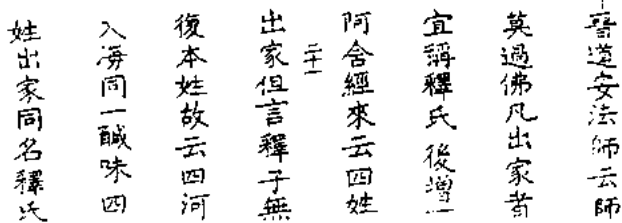 晉道安法師云師
莫過佛凡出家者
宜稱釋氏後增一
阿含經來云四姓
二十一
出家但言釋子無
復本姓故云四河
入海同一醎味四
姓出家同名釋氏